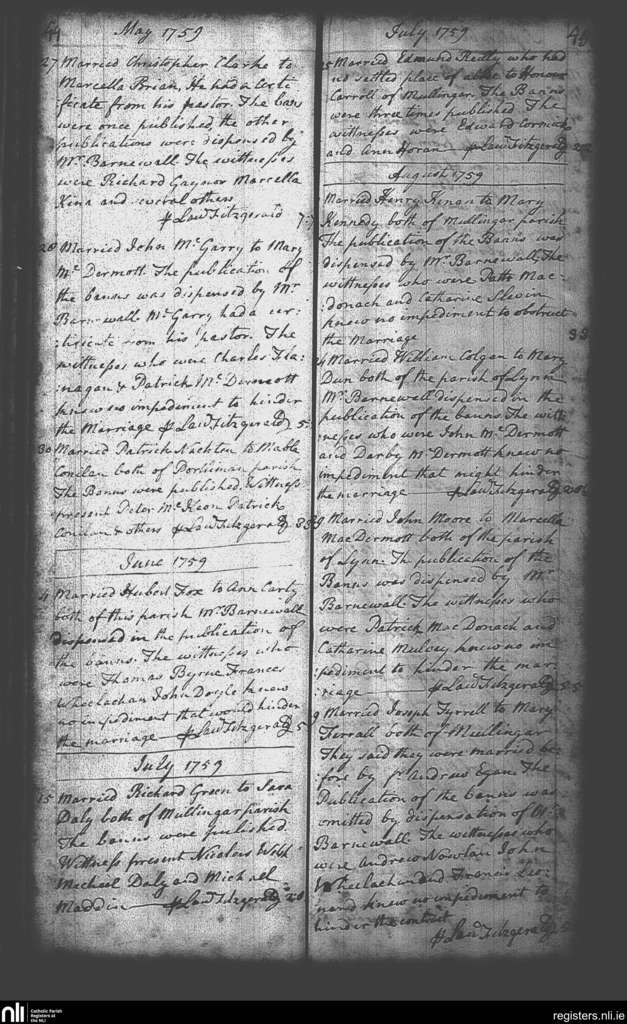 44
May 1759
27 Married Christopher Clarke to
Marcella Brian, He had a Certi
ficate from his pastor. The bans
were once published, the other
publications were dispensed by
Mr. Barnewall The wittnesses
were Richard Gaynor Marcella
Kina and several others
Law: Fitzgerald 7:7
28 Married John Mc. Garry to Mary
Mc. Dermott. The publication of
the banns was dispensed by Mr
Barnewall Mc. Garry had a cer-
tificate from his pastor. The
wittnesses who were Charles Fla-
nagan & Patrick Mc. Dermott
knew no impediment to hinder
the Marriage Law: Fitzgerald 5
30 Married Patrick Nachten to Mable
Conlan both of parish
The Banns were published. Wittness
present Peter Mc. Keon Patrick
Conlan & others Law: Fitzgerald
June 1759
4 Married Hubert Fox to Ann Carty
both of this parish Mr. Barnewall
dispensed in the publication of
the banns. The wittnesses who
were Thomas Byrne Frances
Wheelachan John Doyle knew
no impediment that would hinder
the marriage Law: Fitzgerald 5
July 1759
15 Married Richard Green to Sara
Daly both of Mullingar parish
The banns were published.
Wittness present Nicolas Walsh
Michael Daly and Michael
Maddin Law: Fitzgerald
July 1759
Married Edmund Reilly who had
no settled place of to Honour
Carroll of Mullingar. The Banns
were three times published The
wittnesses were Edward Cormick
and Ann Horan Law: Fitzgerald
August 1759
Married Henry Kenan to Mary
Kennedy both of Mullingar parish
The publication of the Banns was
dispensed by Mr. Barnewall, The
wittnesses who were Patt: Mac-
:donach and Catharine Slevin
knew no impediment to obstruct
the Marriage
Married William Colgan to Mary
Dun both of the parish of Lynn
Mr. Barnewall dispensed in the
publication of the banns The witt
:nesses who were John Mc. Dermott
and Darby Mc. Dermott knew no
impediment that might hinder
the marriage Law: Fitzgerald
Married John Moore to Marcella
MacDermott both of the parish
of Lynn. The publication of the
Banns was dispensed by Mr.
Barnewall. The wittnesses who
were Patrick MacDonach and
Catharine Mulvey knew no im
:pediment to hinder the mar
:riage Law: Fitzgerald
9 Married Joseph Tyrrell to Mary
Ferrall both of Mullingar
They said they were married be
fore by fr. Andrew Egan. The
Publication of the banns was
omitted by dispensation of Mr
Barnewall. The wittnesses who
were Andrew Nowlan John
Wheelachan and Francis Leo-
nard knew no impediment to
hinder the contract
Law: Fitzgerald
nli
Catholic Parish
Registers at
the NLI
registers.nli.ie